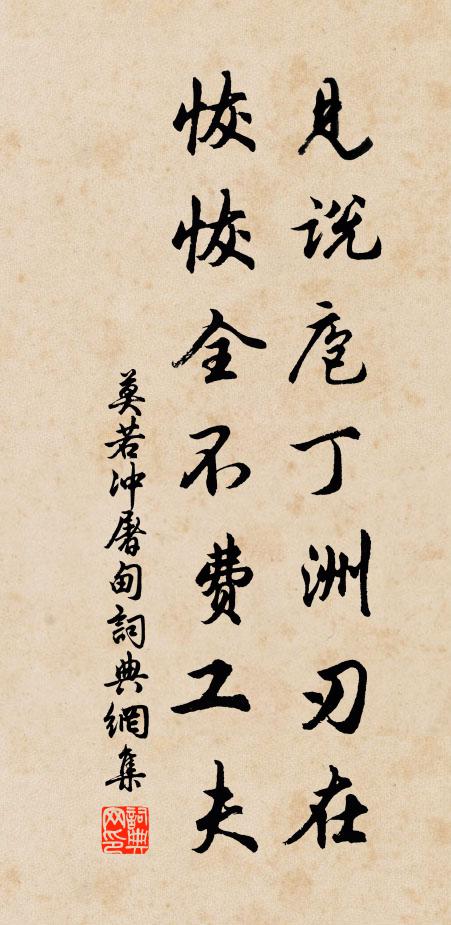 見説庖丁洲刃在
恢恢全不費工夫
莫若冲屠甸詞典網集
詞典网印